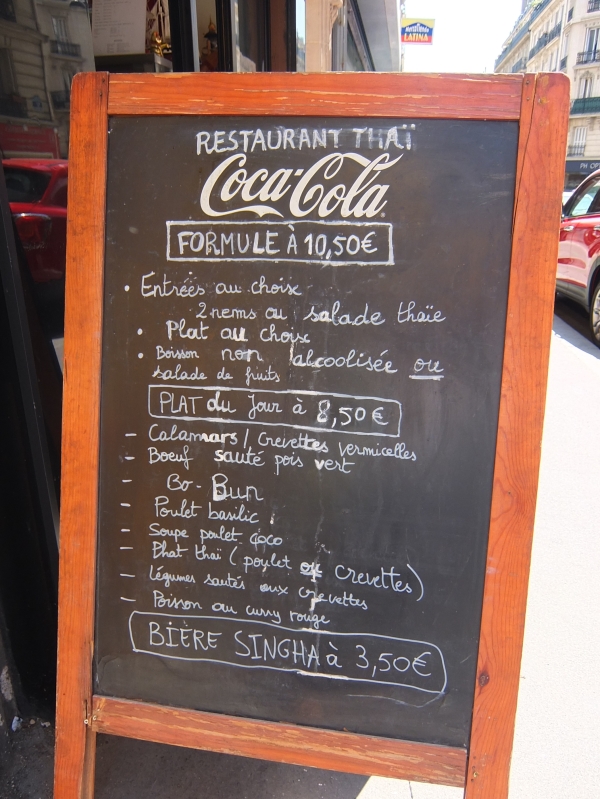 LATINA
RESTAURANT THAÏ
Coca-Cola
FORMULE À 10,50€
• Entrées au choix
2 nems ou salade thaïe
• Plat au choix
• Boisson non alcoolisée ou
salade de fruits
PLAT du Jour à 8,50€
- Calamars / crevettes vermicelles
- Boeuf sauté pois vert
- Bo-Bun
- Poulet basilic
- Soupe poulet coco
- Phat thaï (poulet ou crevettes)
- légumes sautés aux crevettes
- Poisson au curry rouge
BIÈRE SINGHA à 3,50€